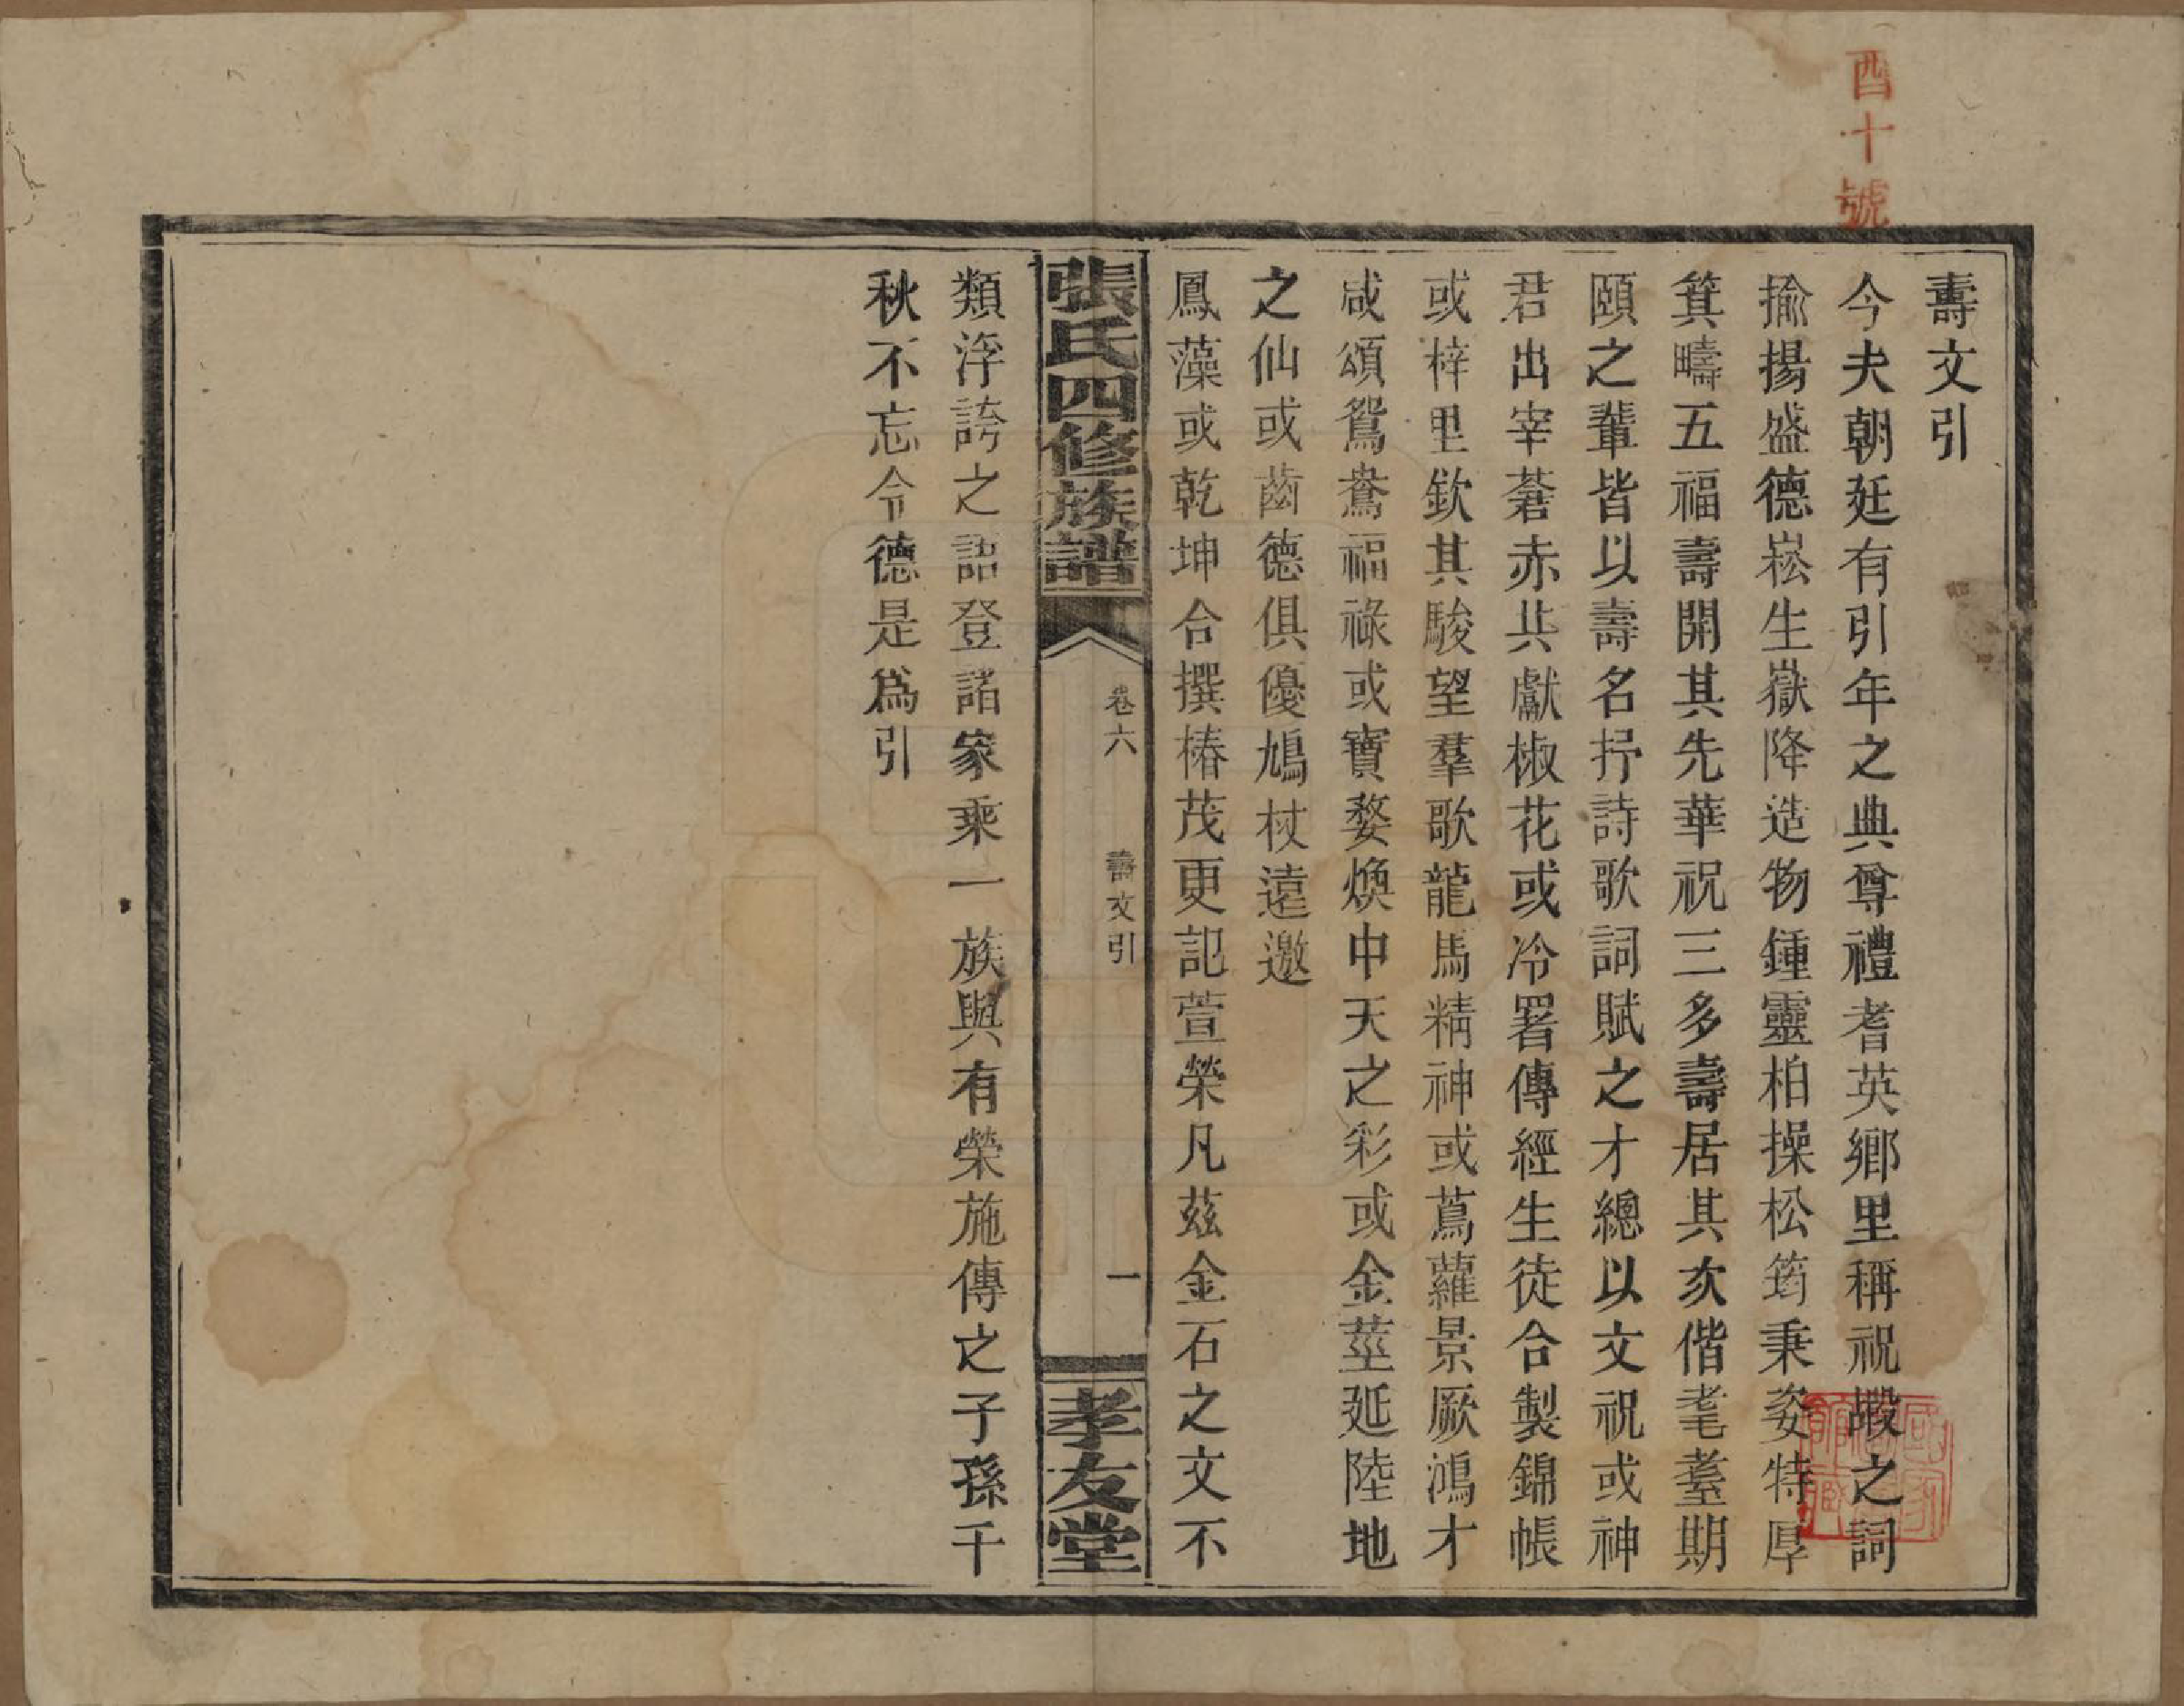 酉十號
壽文引
今夫朝廷有引年之典尊禮耆英鄉里稱祝嘏之詞
揄揚盛德崧生嶽降造物鍾靈柏操松筠秉姿特厚
箕疇五福壽開其先華祝三多壽居其次偕耄耋期
頤之輩皆以壽名抒詩歌詞賦之才總以文祝或神
君出宰蒼赤共獻椒花或冷署傳經生徒合製錦帳
或梓里欽其駿望羣歌龍馬精神或蔦蘿景厥鴻才
咸頌鴛鴦福祿或寶婺煥中天之彩或金莖延陸地
之仙或齒德俱優鳩杖遠邀
鳳藻或乾坤合撰椿茂更記萱榮凡茲金石之文不
張氏四修族譜
卷六
壽文引
一
孝友堂
類浮誇之語登諸家乘一族與有榮施傳之子孫千
秋不忘令德是爲引